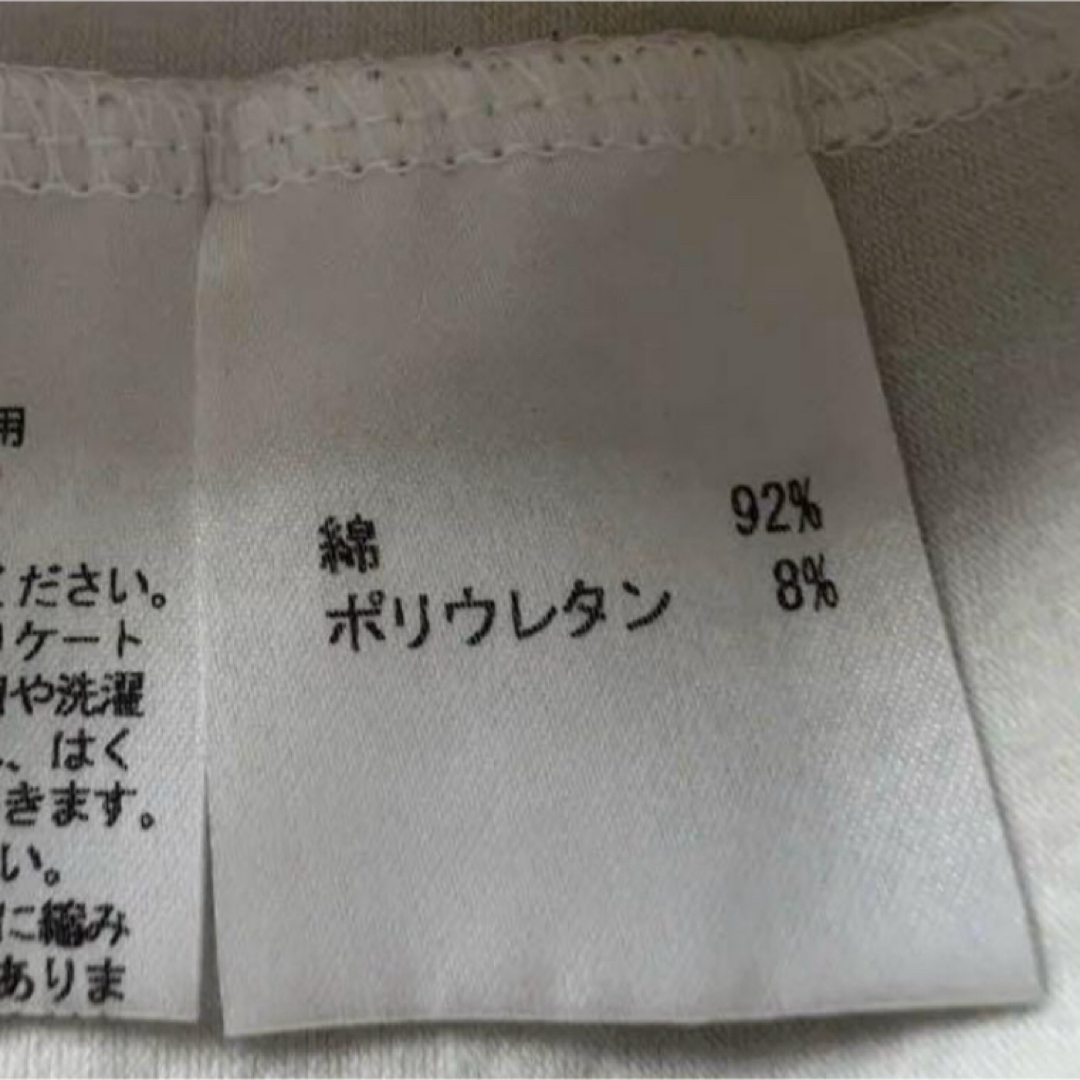 用
ください。
リケート
や洗濯
、はく
きます。
い。
に縮み
ありま
綿 92%
ポリウレタン 8%